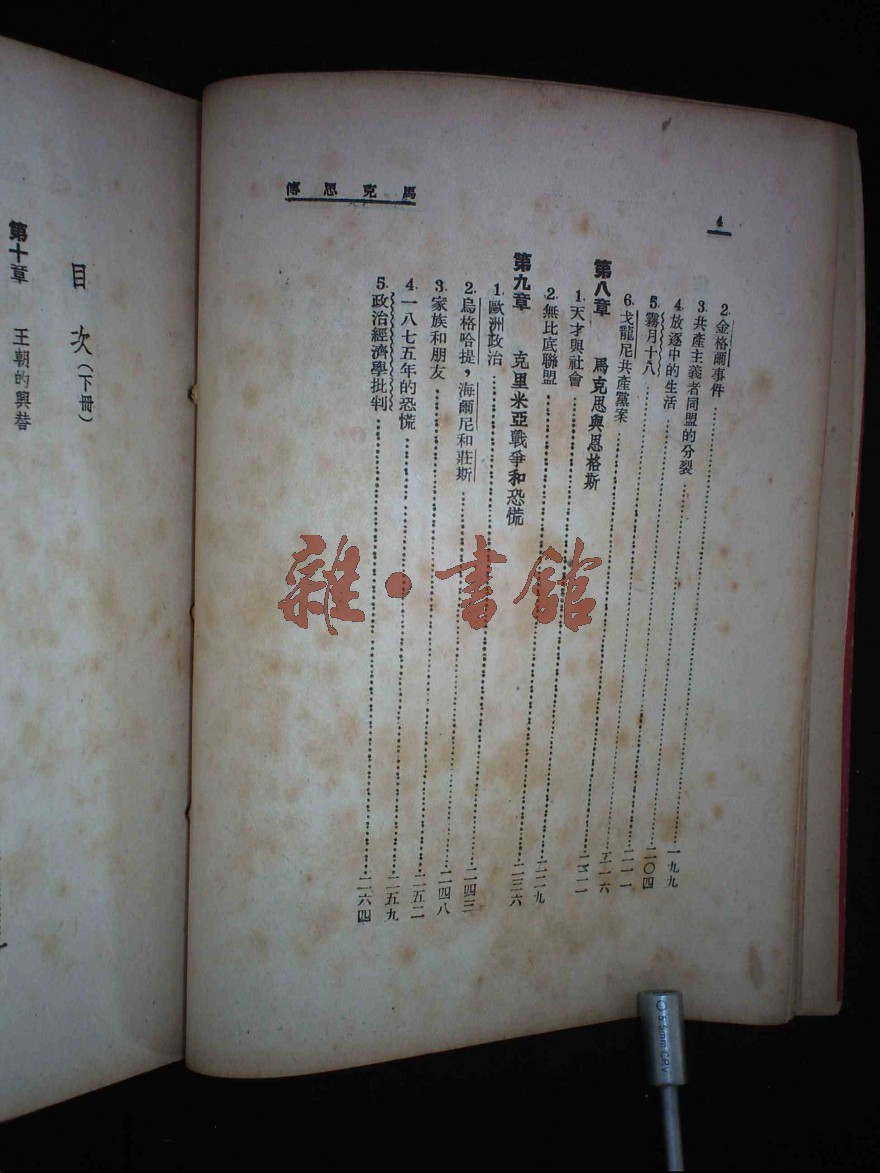 馬克思傳
4
2. 金格爾事件……一九九
3. 共產主義者同盟的分裂……二〇四
4. 放逐中的生活……二一一
5. 霧月十八……二一六
6. 戈龍尼共產黨案……二二一
第八章 馬克思與恩格斯
1. 天才與社會……二二九
2. 無比底聯盟……二三六
第九章 克里米亞戰爭和恐慌
1. 歐洲政治……二四三
2. 烏格哈提，海爾尼和莊斯……二四八
3. 家族和朋友……二五二
4. 一八七五年的恐慌……二五九
5. 政治經濟學批判……二六四
目次（下冊）
第十章 王朝的興替
雜·書館
5-5mm CRV